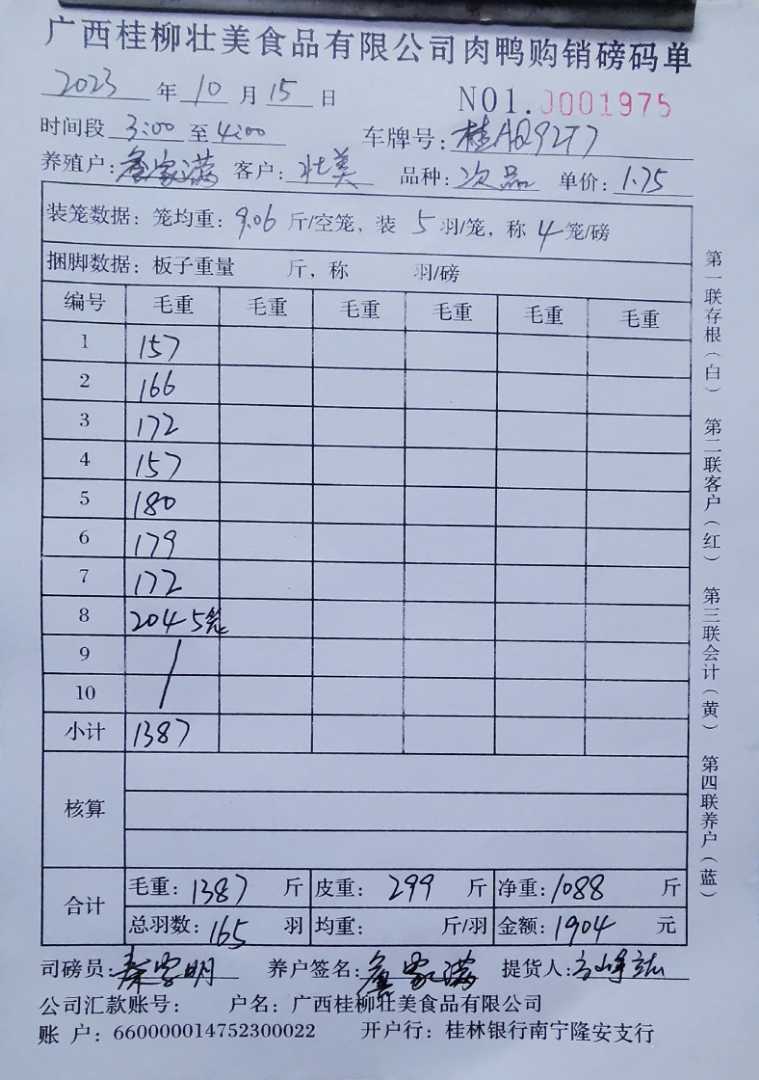 广西桂柳壮美食品有限公司肉鸭购销磅码单
2023 年 10 月 15 日 NO1.0001975
时间段 3:00 至 4:00 车牌号: 桂AQ92T7
养殖户: 詹家满 客户: 壮美 品种: 次品 单价: 1.75
装笼数据: 笼均重: 9.06 斤/空笼, 装 5 羽/笼, 称 4 笼/磅
捆脚数据: 板子重量 斤, 称 羽/磅
编号 毛重 毛重 毛重 毛重 毛重 毛重
1 157
2 166
3 172
4 157
5 180
6 179
7 172
8 204 5笼
9
10
小计 1387
核算
合计 毛重: 1387 斤 皮重: 299 斤 净重: 1088 斤
总羽数: 165 羽 均重: 斤/羽 金额: 1904 元
司磅员: 秦家明 养户签名: 詹家满 提货人:
公司汇款账号: 户名: 广西桂柳壮美食品有限公司
账 户: 660000014752300022 开户行: 桂林银行南宁隆安支行
第一联存根(白) 第二联客户(红) 第三联会计(黄) 第四联养户(蓝)